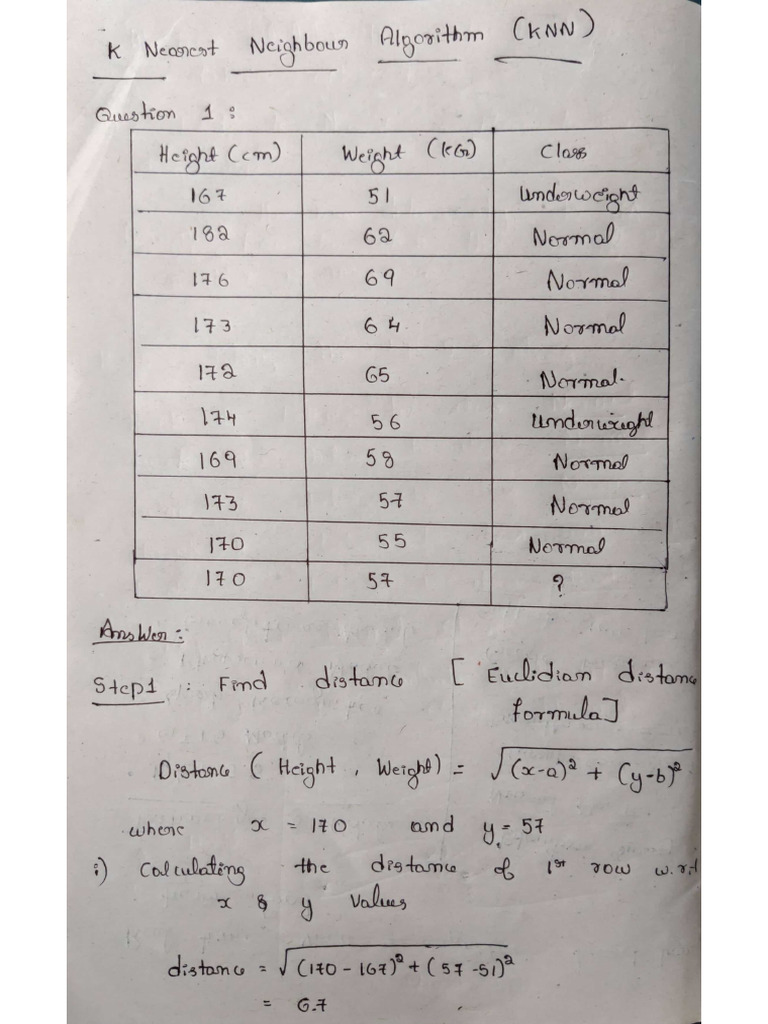 K Nearest Neighbour Algorithm (KNN)
Question 1 :
Height (cm) Weight (KG) Class
167 51 Underweight
182 62 Normal
176 69 Normal
173 64 Normal
172 65 Normal.
174 56 Underweight
169 58 Normal
173 57 Normal
170 55 Normal
170 57 ?
Answer :-
Step1 : Find distance [ Euclidian distance
formula]
Distance ( Height , Weight) = √(x-a)² + (y-b)²
where x = 170 and y = 57
i) Calculating the distance of 1st row w.r.t
x & y values
distance = √(170 - 167)² + (57 - 51)²
= 6.7